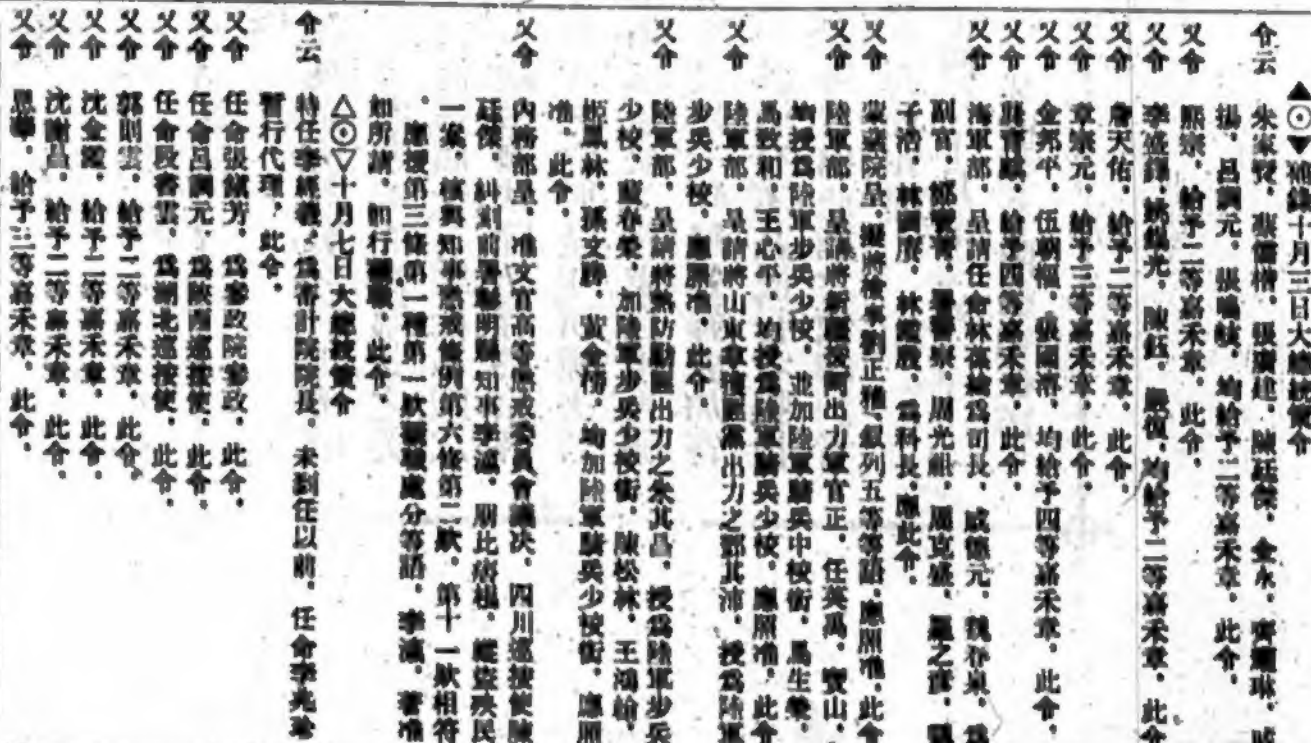 ▲◉▼補錄十月三日大總統策令
令云 朱家寶、蔡儒楷、張廣建、陳廷傑、金永、齊耀琳、戚
揚、呂調元、張鳴岐、均給予二等嘉禾章、此令、
又令 熙崇、給予二等嘉禾章、此令、
又令 李盛鐸、姚錫光、陳鈺、嚴復、均給予二等嘉禾章、此令
又令 詹天佑、給予二等嘉禾章、此令、
又令 章宗元、給予三等嘉禾章、此令、
又令 金邦平、伍朝樞、張國淦、均給予四等嘉禾章、此令、
又令 給予四等嘉禾章、此令、
又令 海軍部、呈請任命林葆綸爲司長、戚懋元、魏春泉、爲
副官、鄭寶菁、周光祖、周克盛、羅之彥、
子浩、林國賡、林 爲科長、應此令、
又令 蒙藏院呈、擬將檢事劉正雅、叙列五等等語、應照准、此令
又令 陸軍部、呈請將新疆 出力軍官正、任英禹、寶山、
均授爲陸軍步兵少校、並加陸軍騎兵中校銜、馬生榮、
馬致和、王心平、均授爲陸軍騎兵少校、應照准、此令
又令 陸軍部、呈請將山東拿獲 出力之鄧其沛、授爲陸軍
步兵少校、應照准、此令、
又令 陸軍部、呈請將熱防勦匪出力之朱其昌、授爲陸軍步兵
少校、盧春榮、加陸軍步兵少校銜、陳松林、王鴻翰、
姬鳳林、孫文勝、黃金榜、均加陸軍騎兵少校銜、應照
准、此令、
又令 內務部呈、准文官高等懲戒委員會議决、四川巡按使陳
廷傑、糾劾前署 明縣知事李澐、朋比痞棍、縱盜殃民
一案、核與知事懲戒條例第六條第二欵、第十一欵相符
、應援第三條第一種第一欵 處分等語、李澐、著准
如所請、如行 、此令、
△◉▽十月七日大總統策令
令云 特任李經羲、爲審計院院長、未到任以前、任命李兆珍
暫行代理、此令、
又令 任命張 芳、爲參政院參政、此令、
又令 任命呂調元、爲陝西巡按使、此令、
又令 任命段書雲、爲湖北巡按使、此令、
又令 郭則雲、給予二等嘉禾章、此令、
又令 沈金鑑、給予二等嘉禾章、此令、
又令 沈謝昌、給予二等嘉禾章、此令、
又令 恩華、給予三等嘉禾章、此令、